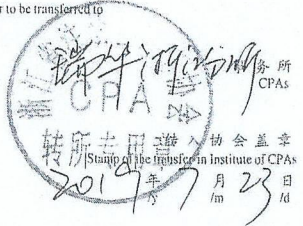 r to be transferred to
瑞华浙江分所 务所
CPAs
CPA
协会
转所专用章
转入协会盖章
Stamp of the transfer-in Institute of CPAs
2019年7月23日
/y /m /d